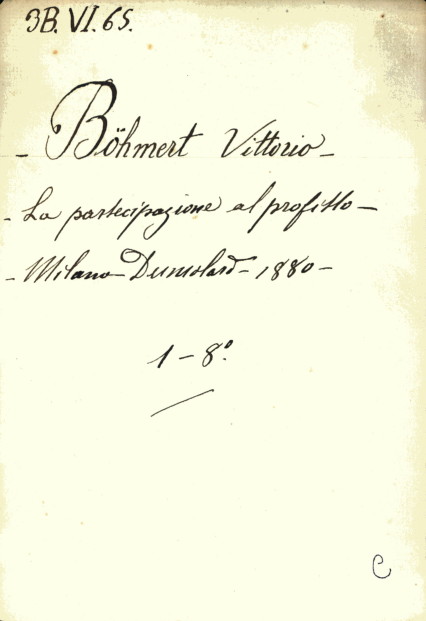 3B. VI. 65.
- Böhmert Vittorio -
- La partecipazione al profitto -
- Milano - Dumolard - 1880 -
1 - 8°.
C